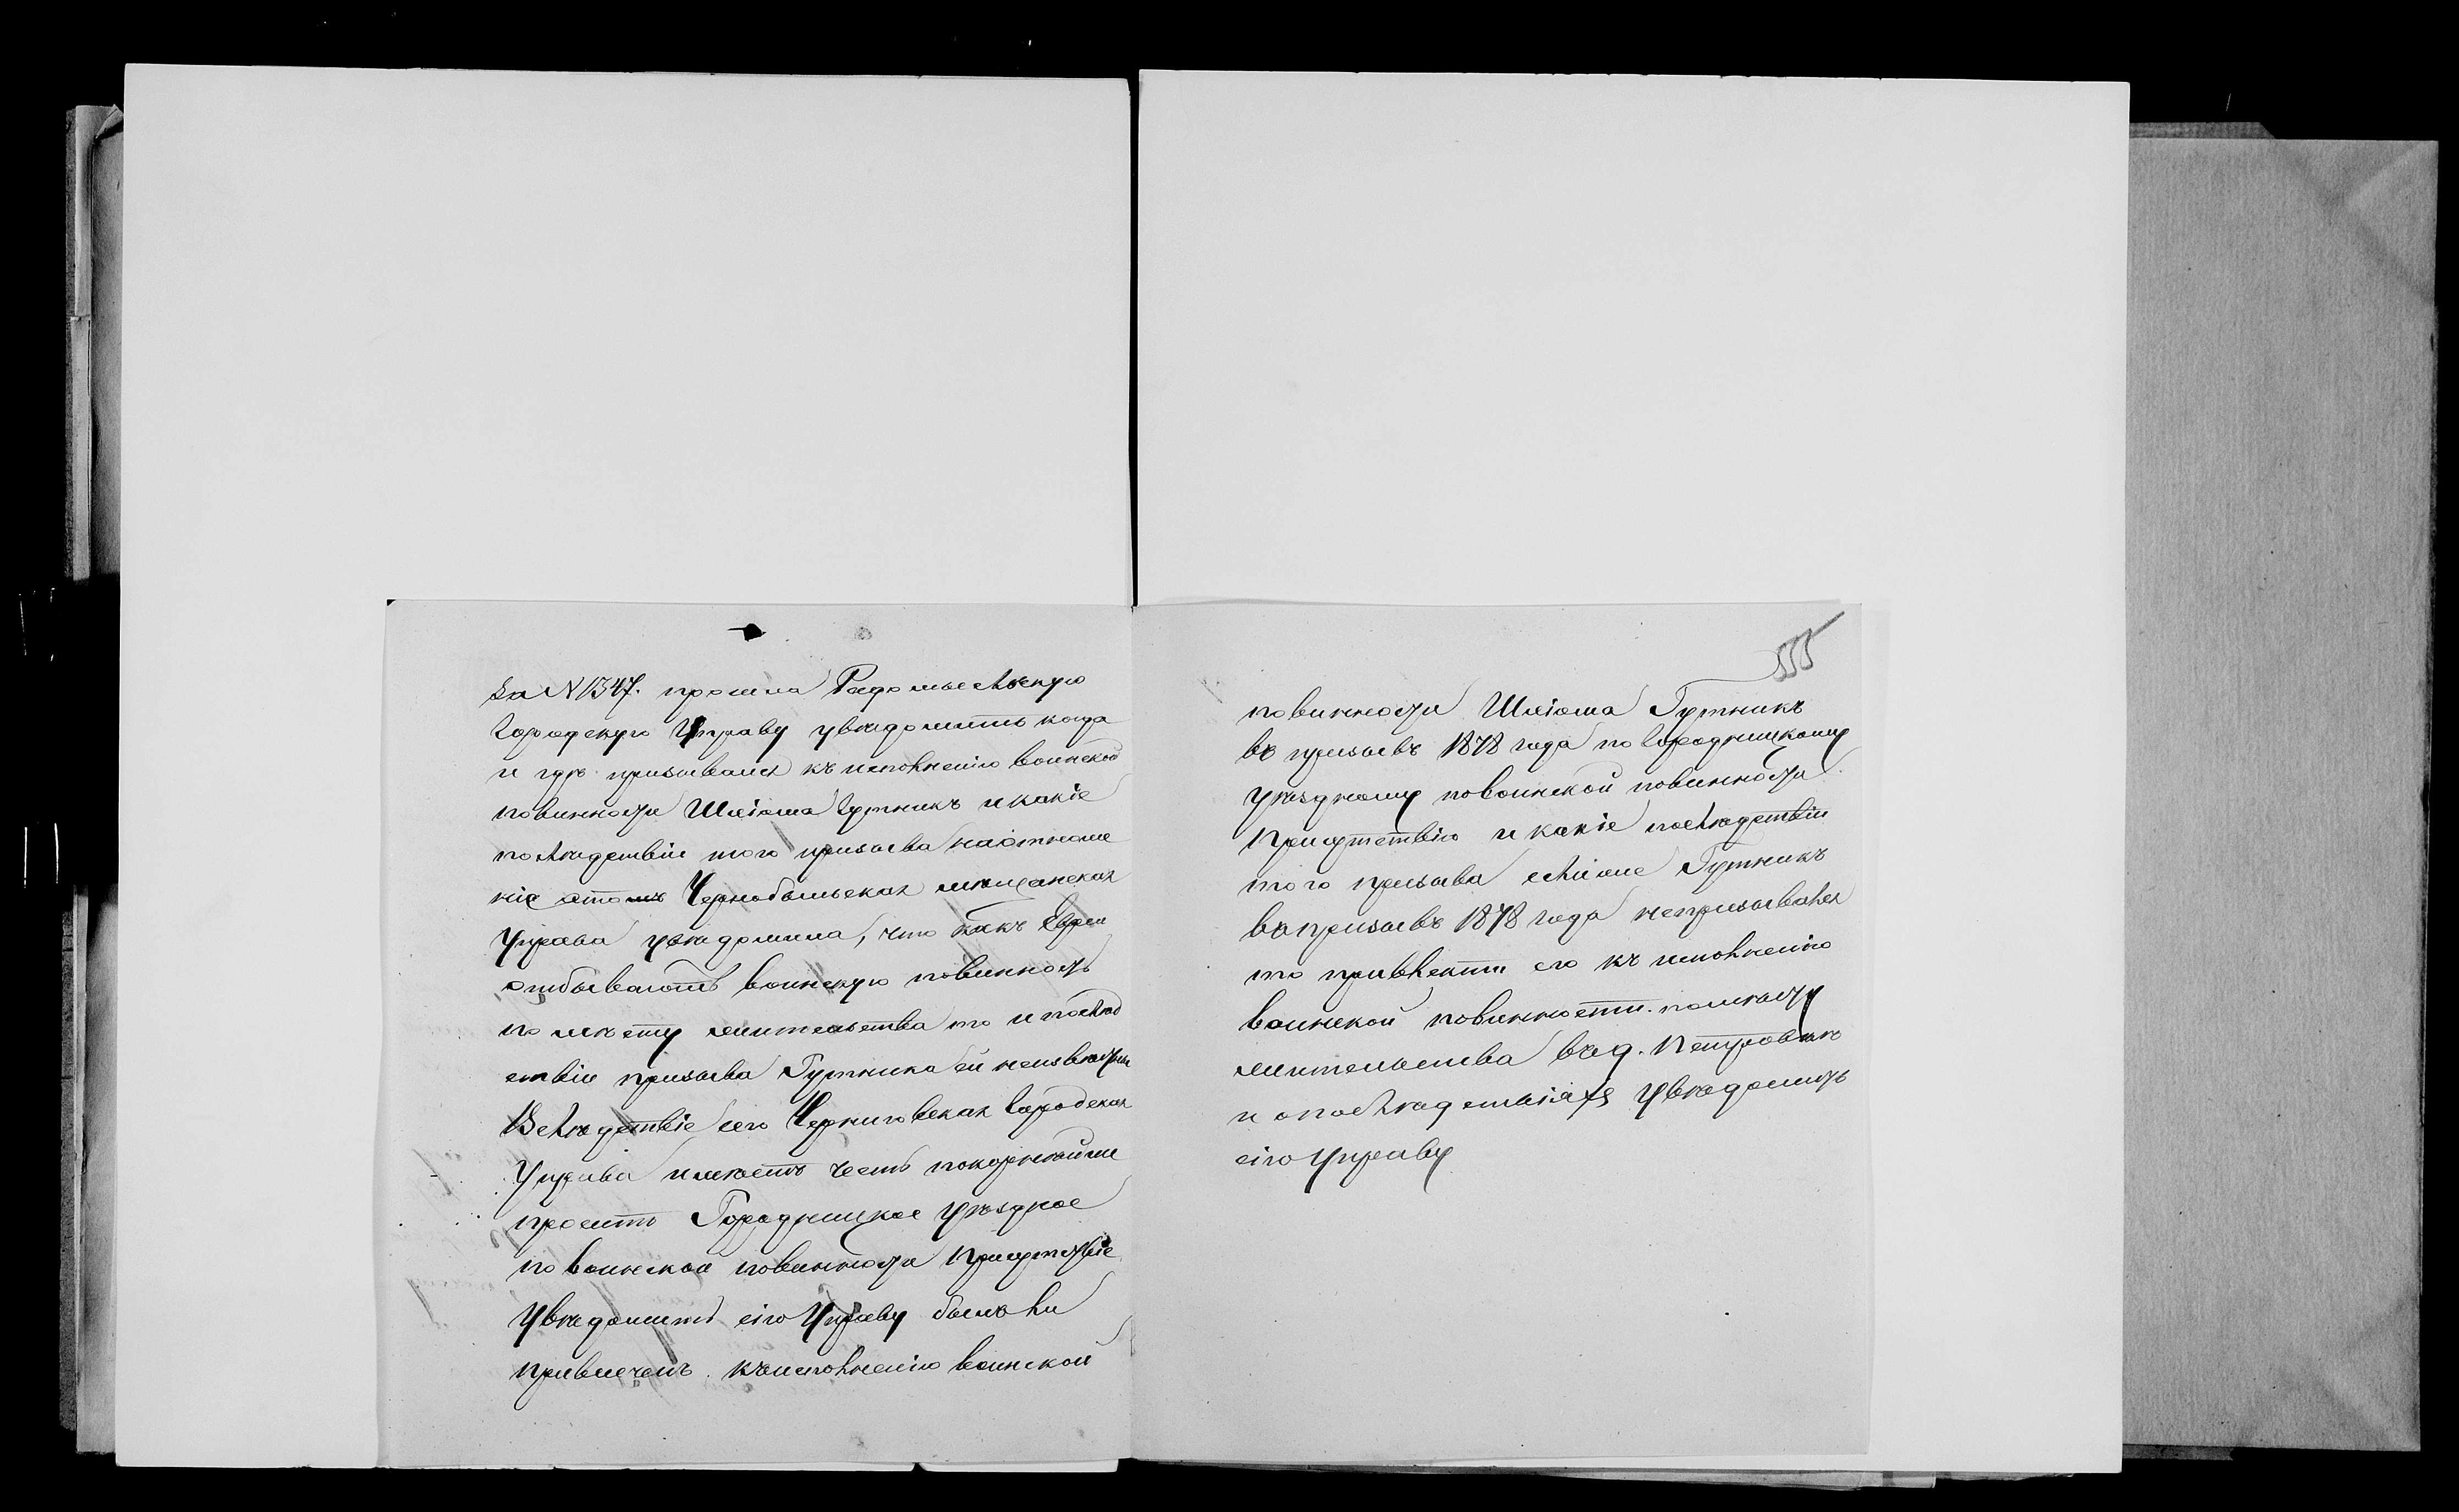 за N 1347. просила Радомысльскую
Городскую Управу увѣдомить когда
и гдѣ призывался къ исполненію воинской
повинности Шліома Гутникъ и какіе
послѣдствіи того призыва на отноше
ніе это Чернобыльская мѣщанская
Управа увѣдомила, что какъ Евреи
отбываютъ воинскую повинность
по мѣсту жительства то и послѣд
ствіи призыва Гутника ей неизвѣстны
Вслѣдствіе сего Черниговская Городская
Управа имѣетъ честь покорнѣйше
просить Городницкое уѣздное
по воинской повинности Присутствіе
увѣдомить сію Управу былъ ли
привлеченъ къ исполненію воинской
555
повинности Шліома Гутникъ
въ призывъ 1878 года по Городницкому
уѣздному по воинской повинности
Присутствію и какіе послѣдствіи
того призыва если же Гутникъ
въ призывъ 1878 года не призывался
то привлекти его къ исполненію
воинской повинности по мѣсту
жительства въ д. Петровкѣ
и о послѣдствіяхъ увѣдомить
сію Управу